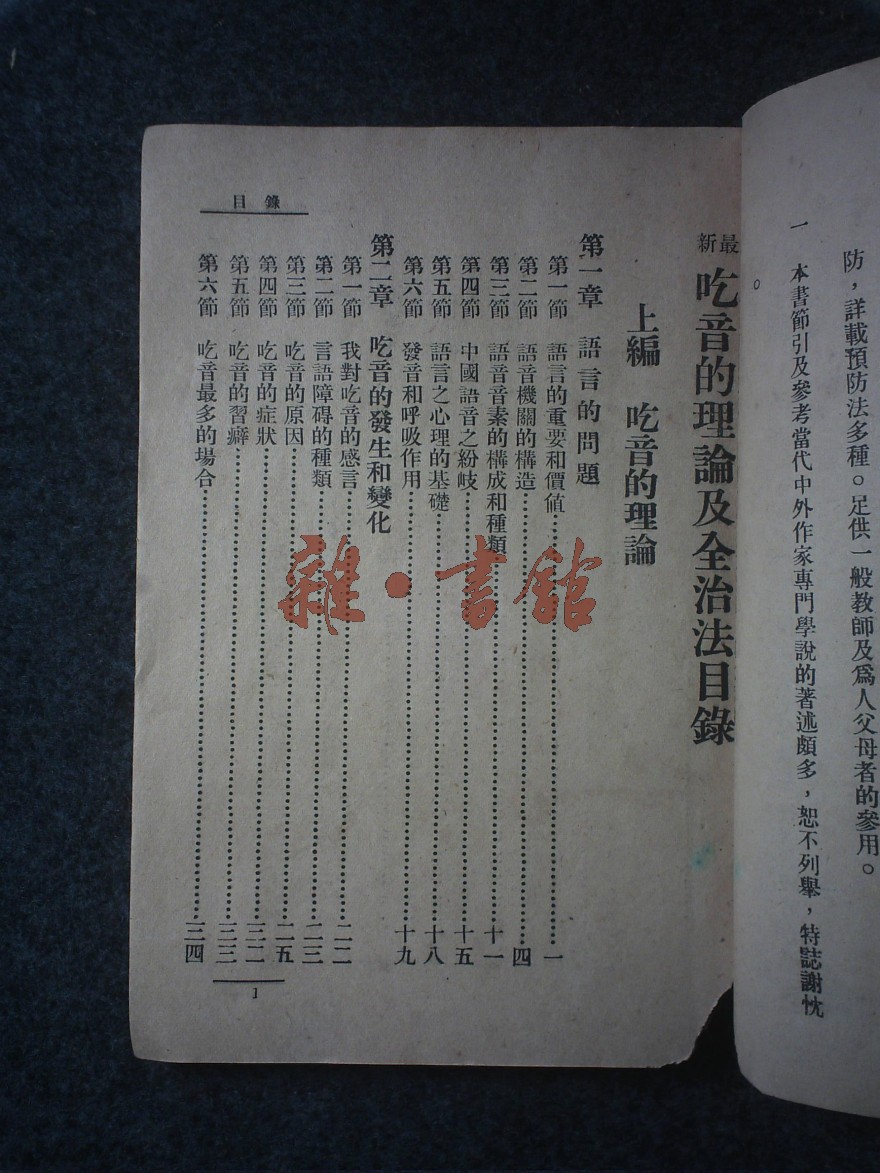 防，詳載預防法多種。足供一般教師及爲人父母者的參用。
一 本書節引及參考當代中外作家專門學說的著述頗多，恕不列舉，特誌謝忱。
最新 吃音的理論及全治法目錄
上編 吃音的理論
第一章 語言的問題
第一節 語言的重要和價值……一
第二節 語音機關的構造……四
第三節 語音音素的構成和種類……十一
第四節 中國語音之紛岐……十五
第五節 語言之心理的基礎……十八
第六節 發音和呼吸作用……十九
第二章 吃音的發生和變化
第一節 我對吃音的感言……二二
第二節 言語障碍的種類……二三
第三節 吃音的原因……二五
第四節 吃音的症狀……三二
第五節 吃音的習癖……三三
第六節 吃音最多的場合……三四
目錄
1
雜·書館